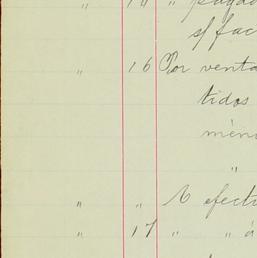 " 14 " pagad
s/ fac
" 16 Por venta
tidos
ménd
"
" " A efecti
" 17 " " á